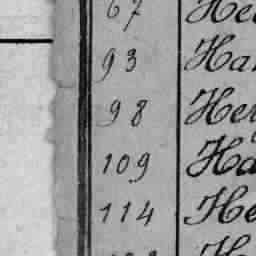 67 He
93 Ha
98 Her
109 Ha
114 He